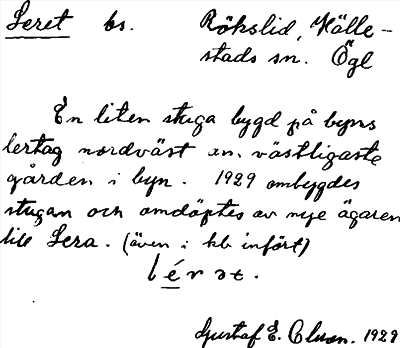 Leret bs. Rökslid, Hälle-
stads sn. Ögl
En liten stuga bygd på byns
lertag nordväst om västligaste
gården i byn. 1929 ombygdes
stugan och omdöptes av nye ägaren
till Lera. (även i kb infört)
lérət.
Gustaf E. Olsson. 1929